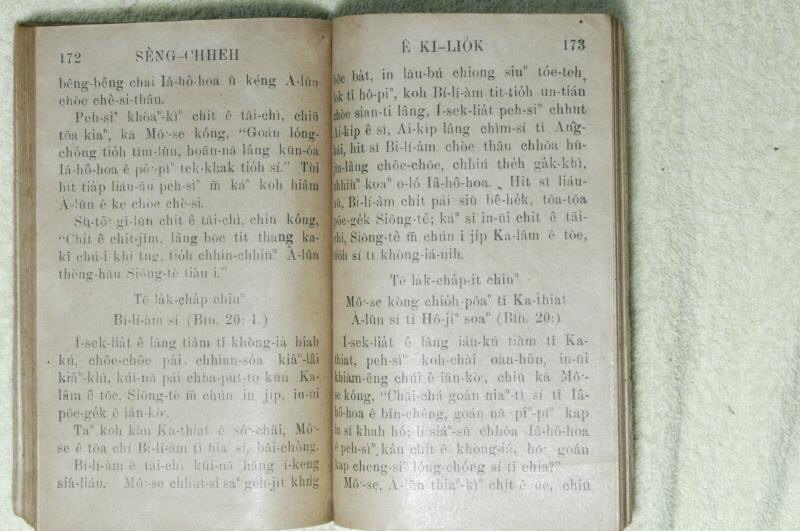 172 SÈNG-CHHEH
bêng-bêng chai Iâ-hô-hoa ū kéng A-lûn
chòe chè-si-thâu.
Peh-siⁿ khòaⁿ-kìⁿ chit ê tāi-chì, chiū
tōa kiaⁿ, kā Mô͘-se kóng, “Goán lóng-
chóng tio̍h tîm-lûn, hoān-nā lâng kūn-óa
Iâ-hô-hoa ê pò͘-pîⁿ tek-khak tio̍h sí.” Tùi
hit tia̍p liáu-āu peh-siⁿ m̄ káⁿ koh hiâm
A-lûn ê ke chòe chè-si.
Sù-tô͘ gī-lūn chit ê tāi-chì, chiū kóng,
“Chit ê chit-jīm, lâng bōe tit thang ka-
kī chú-ì khì tng, tio̍h chhin-chhiūⁿ A-lûn
thèng-hāu Siōng-tè tiàu i.”
Tē la̍k-cha̍p chiuⁿ
Bí-lí-àm sí (Bîn. 20: 1.)
Í-sek-lia̍t ê lâng tiàm tī khòng-iá hiah
kú, chōe-chōe pái chhian-sóa kiâⁿ-lâi
kiâⁿ-khì, kúi-nā pái chha-put-to kūn Ka-
lâm ê tōe, Siōng-tè m̄ chún in ji̍p, in-ūi
pōe-ge̍k ê iân-kò͘.
Taⁿ koh kàu Ka-thiat ê só͘-chāi, Mô͘-
se ê tōa chí Bí-lí-àm tī hia sí, bâi-chòng.
Bí-lí-àm ê tāi-chì kúi-nā hāng í-keng
siá-liáu. Mô͘-se chhut-sì saⁿ ge̍h-ji̍t khǹg
Ê KÌ-LIO̍K 173
bat, in lāu-bú chiong siuⁿ tóe-teh,
tī hô-piⁿ, koh Bí-lí-àm tit-tio̍h un-tián
chòe sian-ti lâng, Í-sek-lia̍t peh-sìⁿ chhut
Ai-ki̍p ê sî, Ai-ki̍p lâng chìm-sí tī Âng-
hái, hit sî Bí-lí-àm chòe thâu chhōa hū-
jîn-lâng chōe-chōe, chhiú the̍h ga̍k-khì,
chhiùⁿ koaⁿ o-ló Iâ-hô-hoa. Hit sî liáu-
āu, Bí-lí-àm chit pái siū bê-he̍k, tōa-tōa
pōe-ge̍k Siōng-tè; káⁿ sī in-ūi chit ê tāi-
chì, Siōng-tè m̄ chún i ji̍p Ka-lâm ê tōe,
tio̍h sí tī khòng-iá-nih.
Tē la̍k-cha̍p-it chiuⁿ
Mô͘-se kòng chio̍h-pôaⁿ tī Ka-thiat
A-lûn sí tī Hô-jíⁿ soaⁿ (Bîn. 20:)
Í-sek-lia̍t ê lâng iáu-kú tiàm tī Ka-
thiat, peh-sìⁿ koh-chài oàn-hūn, in-ūi
khiàm-ēng chúi ê iân-kò͘, chiū kā Mô͘-
se kóng, “Chāi-chá goán niaⁿ-tī sí tī Iâ-
hô-hoa ê bīn-chêng, goán nā pîⁿ-pîⁿ kap
in sí khah hó; lí siáⁿ-sū chhōa Iâ-hô-hoa
ê peh-sìⁿ kàu chit ê khòng-iá, hō͘ goán
kap cheng-siⁿ lóng-chóng sí tī chia?”
Mô͘-se, A-lûn thiaⁿ-kìⁿ chit ê ōe, chiū